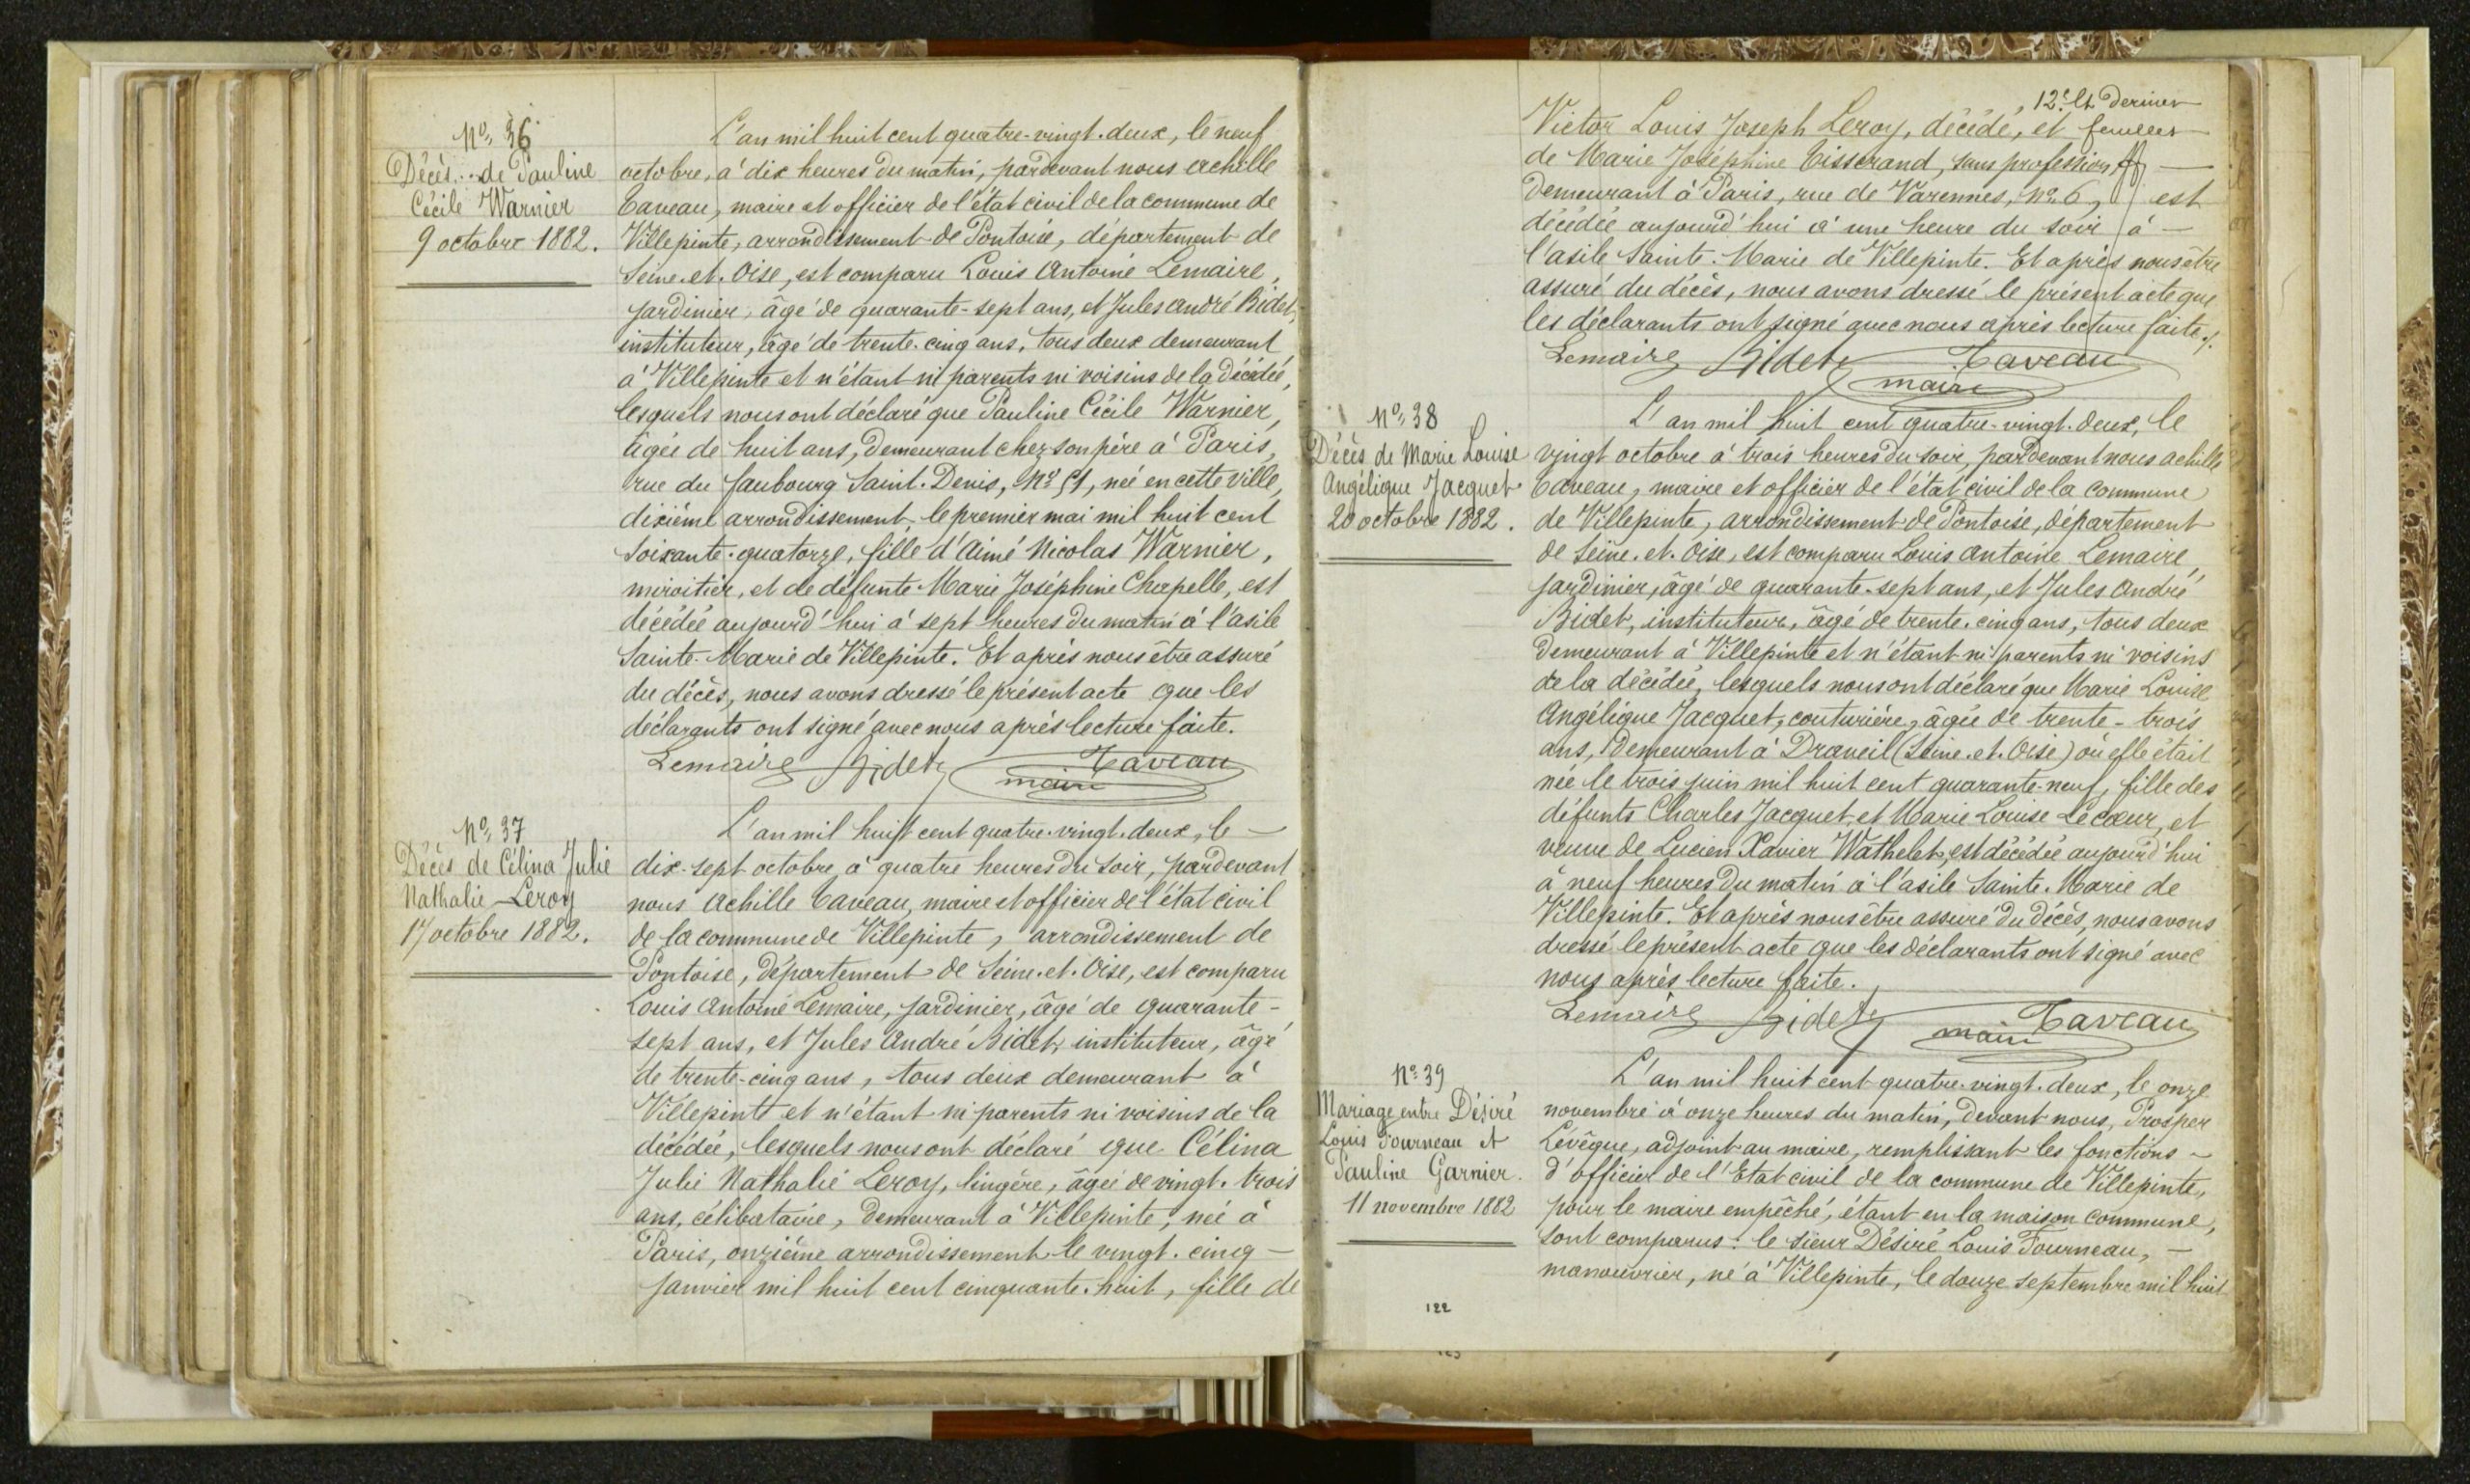 No 36
Décès de Pauline
Cécile Warnier
9 octobre 1882.
L'an mil huit cent quatre-vingt-deux, le neuf
octobre, à dix heures du matin, pardevant nous Achille
Taveau, maire et officier de l'état civil de la commune de
Villepinte, arrondissement de Pontoise, département de
Seine-et-Oise, est comparu Louis Antoine Lemaire,
jardinier, âgé de quarante-sept ans, et Jules André Bidet,
instituteur, âgé de trente-cinq ans, tous deux demeurant
à Villepinte et n'étant ni parents ni voisins de la décédée,
lesquels nous ont déclaré que Pauline Cécile Warnier,
âgée de huit ans, demeurant chez son père à Paris,
rue du faubourg Saint-Denis, No 51, née en cette ville,
dixième arrondissement, le premier mai mil huit cent
soixante-quatorze, fille d'Aimé Nicolas Warnier,
miroitier, et de défunte Marie Joséphine Chapelle, est
décédée aujourd'hui à sept heures du matin à l'asile
Sainte-Marie de Villepinte. Et après nous être assuré
du décès, nous avons dressé le présent acte que les
déclarants ont signé avec nous après lecture faite.
Lemaire Bidet Taveau
maire
No 37
Décès de Célina Julie
Nathalie Leroy
17 octobre 1882.
L'an mil huit cent quatre-vingt-deux, le
dix-sept octobre, à quatre heures du soir, pardevant
nous Achille Taveau, maire et officier de l'état civil
de la commune de Villepinte, arrondissement de
Pontoise, département de Seine-et-Oise, est comparu
Louis Antoine Lemaire, jardinier, âgé de quarante-
sept ans, et Jules André Bidet, instituteur, âgé
de trente-cinq ans, tous deux demeurant à
Villepinte et n'étant ni parents ni voisins de la
décédée, lesquels nous ont déclaré que Célina
Julie Nathalie Leroy, lingère, âgée de vingt-trois
ans, célibataire, demeurant à Villepinte, née à
Paris, onzième arrondissement le vingt-cinq
janvier mil huit cent cinquante-huit, fille de
12e et dernier
feuillet
Victor Louis Joseph Leroy, décédé, et
de Marie Joséphine Tisserand, sans profession,
demeurant à Paris, rue de Varennes, No 6, est
décédée aujourd'hui à une heure du soir à
l'asile Sainte-Marie de Villepinte. Et après nous être
assuré du décès, nous avons dressé le présent acte que
les déclarants ont signé avec nous après lecture faite.
Lemaire Bidet Taveau
maire
No 38
Décès de Marie Louise
Angélique Jacquet
20 octobre 1882.
L'an mil huit cent quatre-vingt-deux, le
vingt octobre à trois heures du soir, pardevant nous Achille
Taveau, maire et officier de l'état civil de la commune
de Villepinte, arrondissement de Pontoise, département
de Seine-et-Oise, est comparu Louis Antoine Lemaire,
jardinier, âgé de quarante-sept ans, et Jules André
Bidet, instituteur, âgé de trente-cinq ans, tous deux
demeurant à Villepinte et n'étant ni parents ni voisins
de la décédée, lesquels nous ont déclaré que Marie Louise
Angélique Jacquet, couturière, âgée de trente-trois
ans, demeurant à Draveil (Seine-et-Oise) où elle était
née le trois juin mil huit cent quarante-neuf, fille des
défunts Charles Jacquet et Marie Louise Lecœur, et
veuve de Lucien Xavier Wathelet, est décédée aujourd'hui
à neuf heures du matin à l'asile Sainte-Marie de
Villepinte. Et après nous être assuré du décès, nous avons
dressé le présent acte que les déclarants ont signé avec
nous après lecture faite.
Lemaire Bidet Taveau
maire
No 39
Mariage entre Désiré
Louis Fourneau et
Pauline Garnier.
11 novembre 1882
L'an mil huit cent quatre-vingt-deux, le onze
novembre à onze heures du matin, devant nous, Prosper
Lévêque, adjoint au maire, remplissant les fonctions
d'officier de l'Etat civil de la commune de Villepinte,
pour le maire empêché, étant en la maison commune,
sont comparus: le sieur Désiré Louis Fourneau,
manouvrier, né à Villepinte, le douze septembre mil huit
122